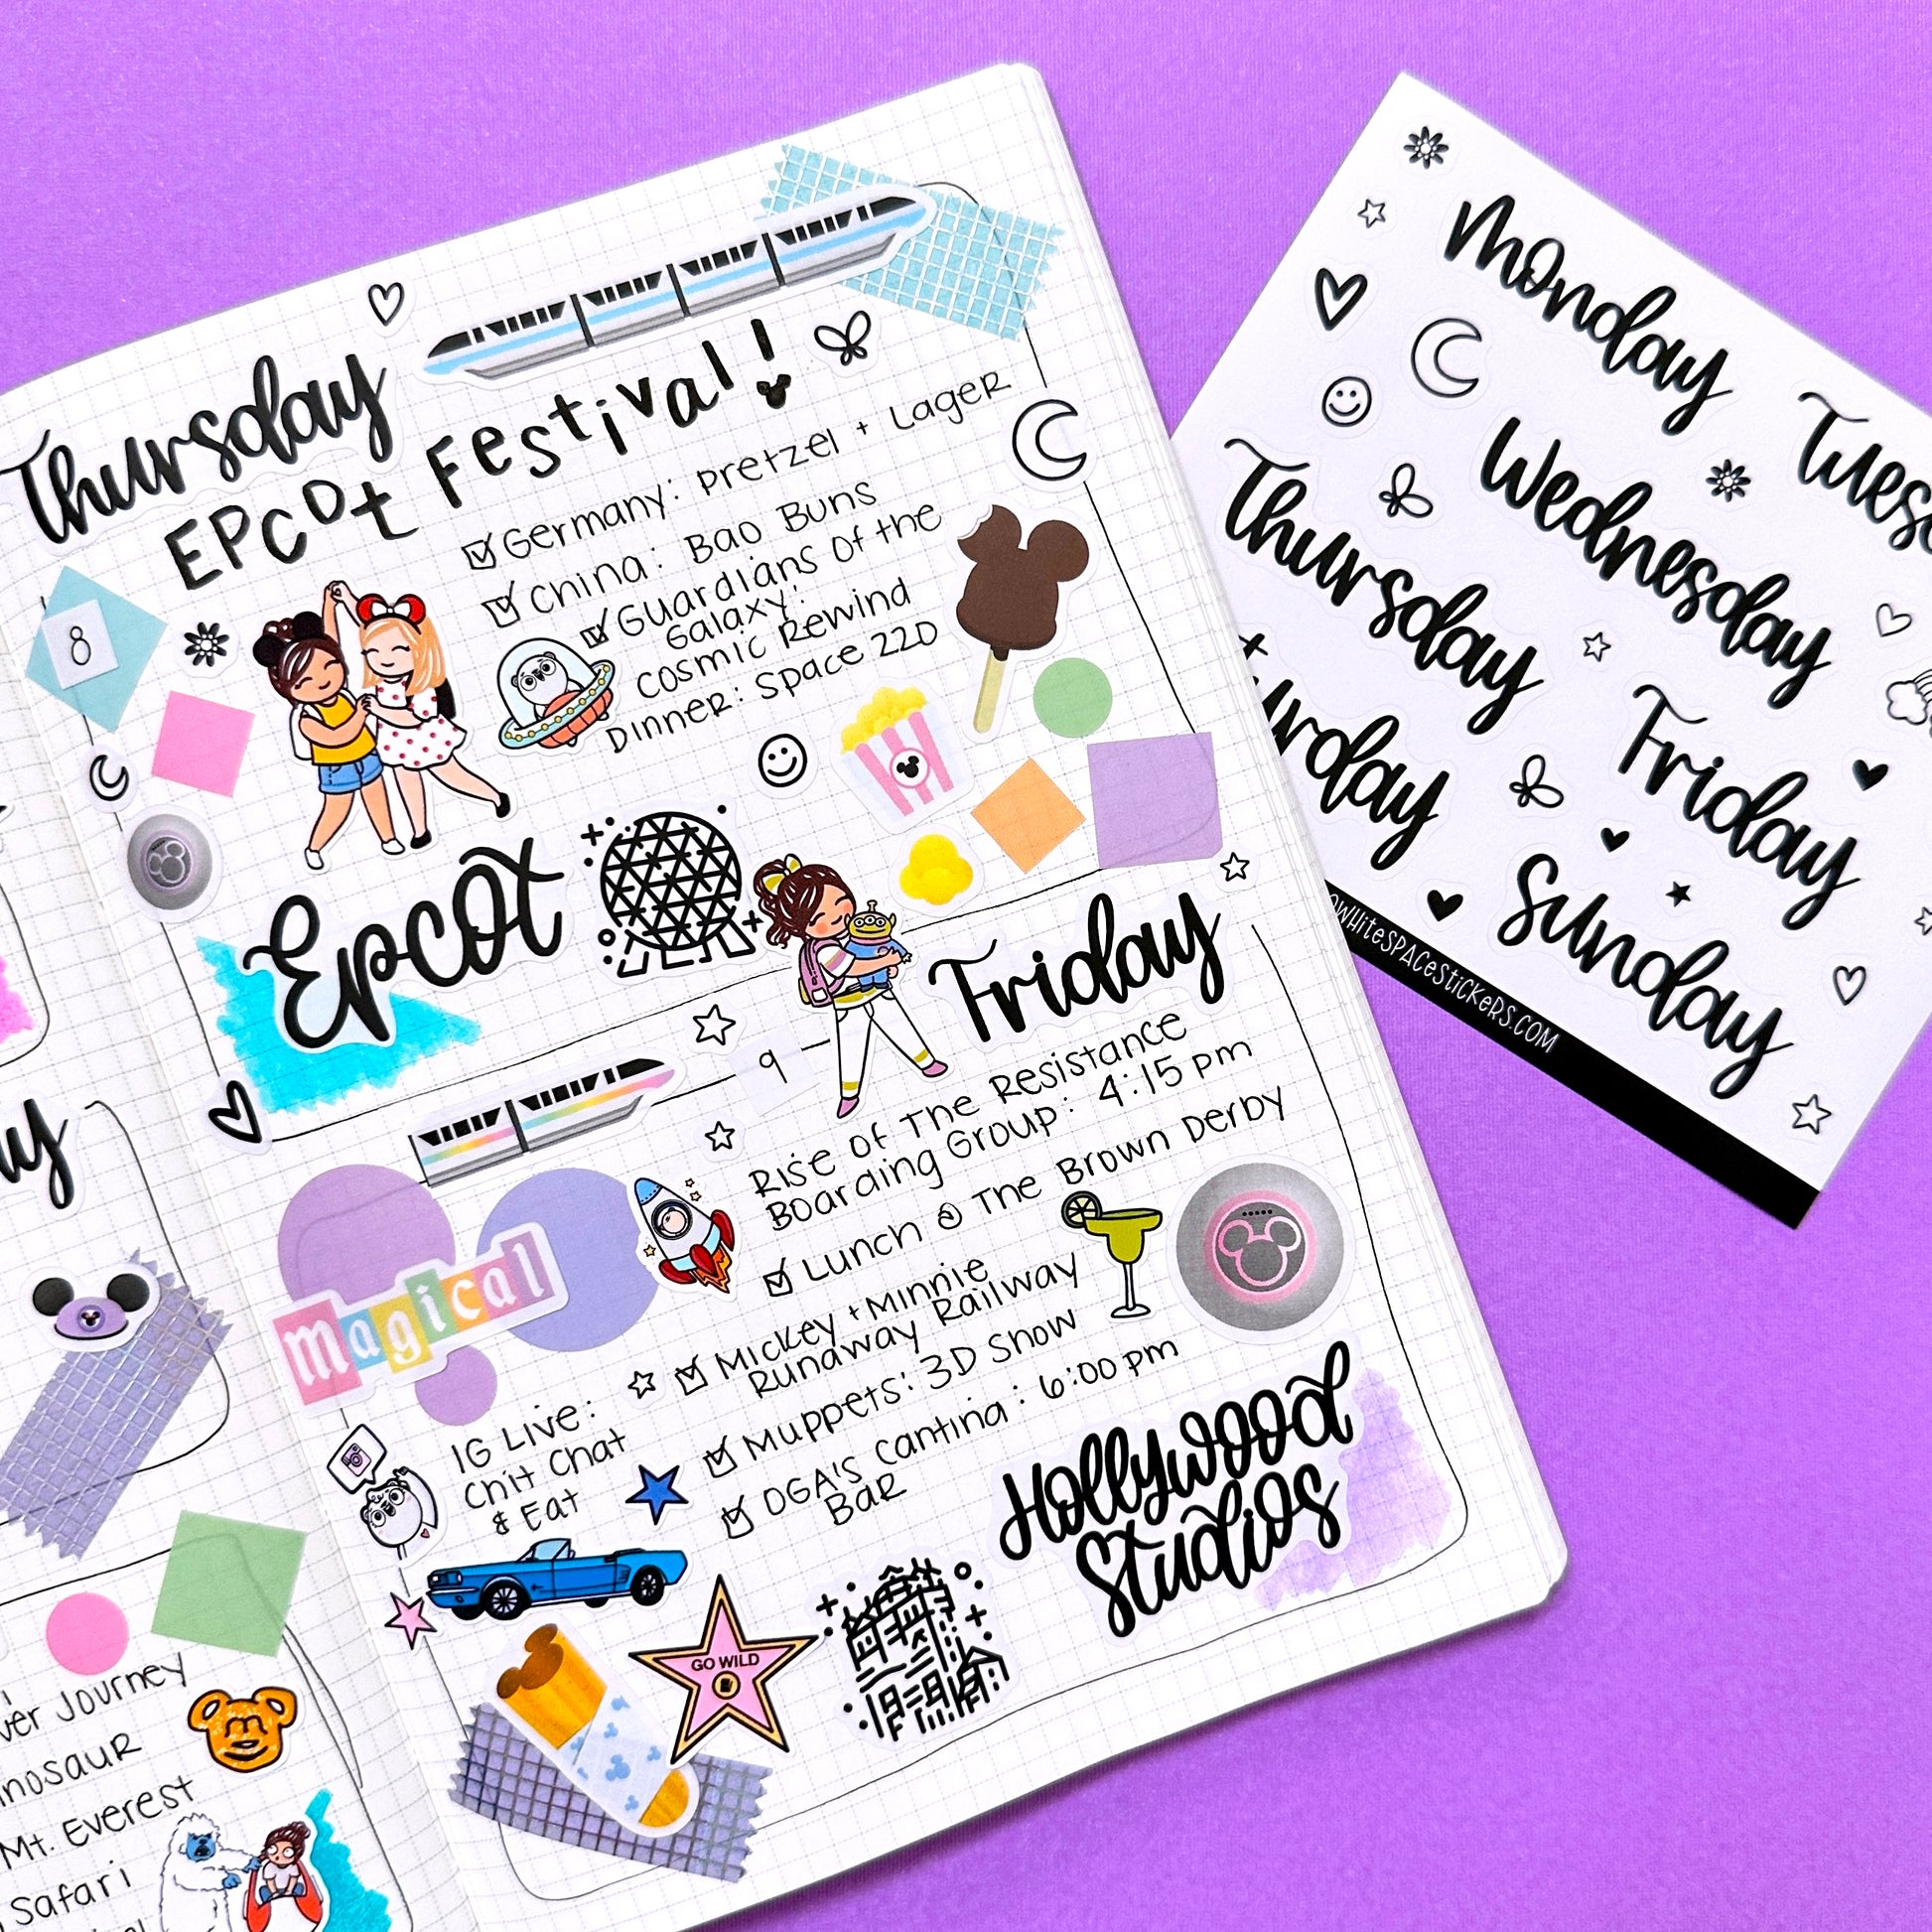 Thursday
EPCOT Festival!
Germany: Pretzel + Lager
China: Bao Buns
Guardians of the
Galaxy:
Cosmic Rewind
Dinner: Space 220
8
Epcot
9
Friday
Rise of The Resistance
Boarding Group: 4:15 pm
Lunch @ The Brown Derby
Mickey + Minnie
Runaway Railway
Muppets: 3D Show
OGA'S Cantina: 6:00 pm
Bar
magical
IG Live:
Chit Chat
& Eat
GO WILD
Hollywood
Studios
Journey
Mt. Everest
Safari
Monday
Wednesday
Thursday
Friday
Sunday